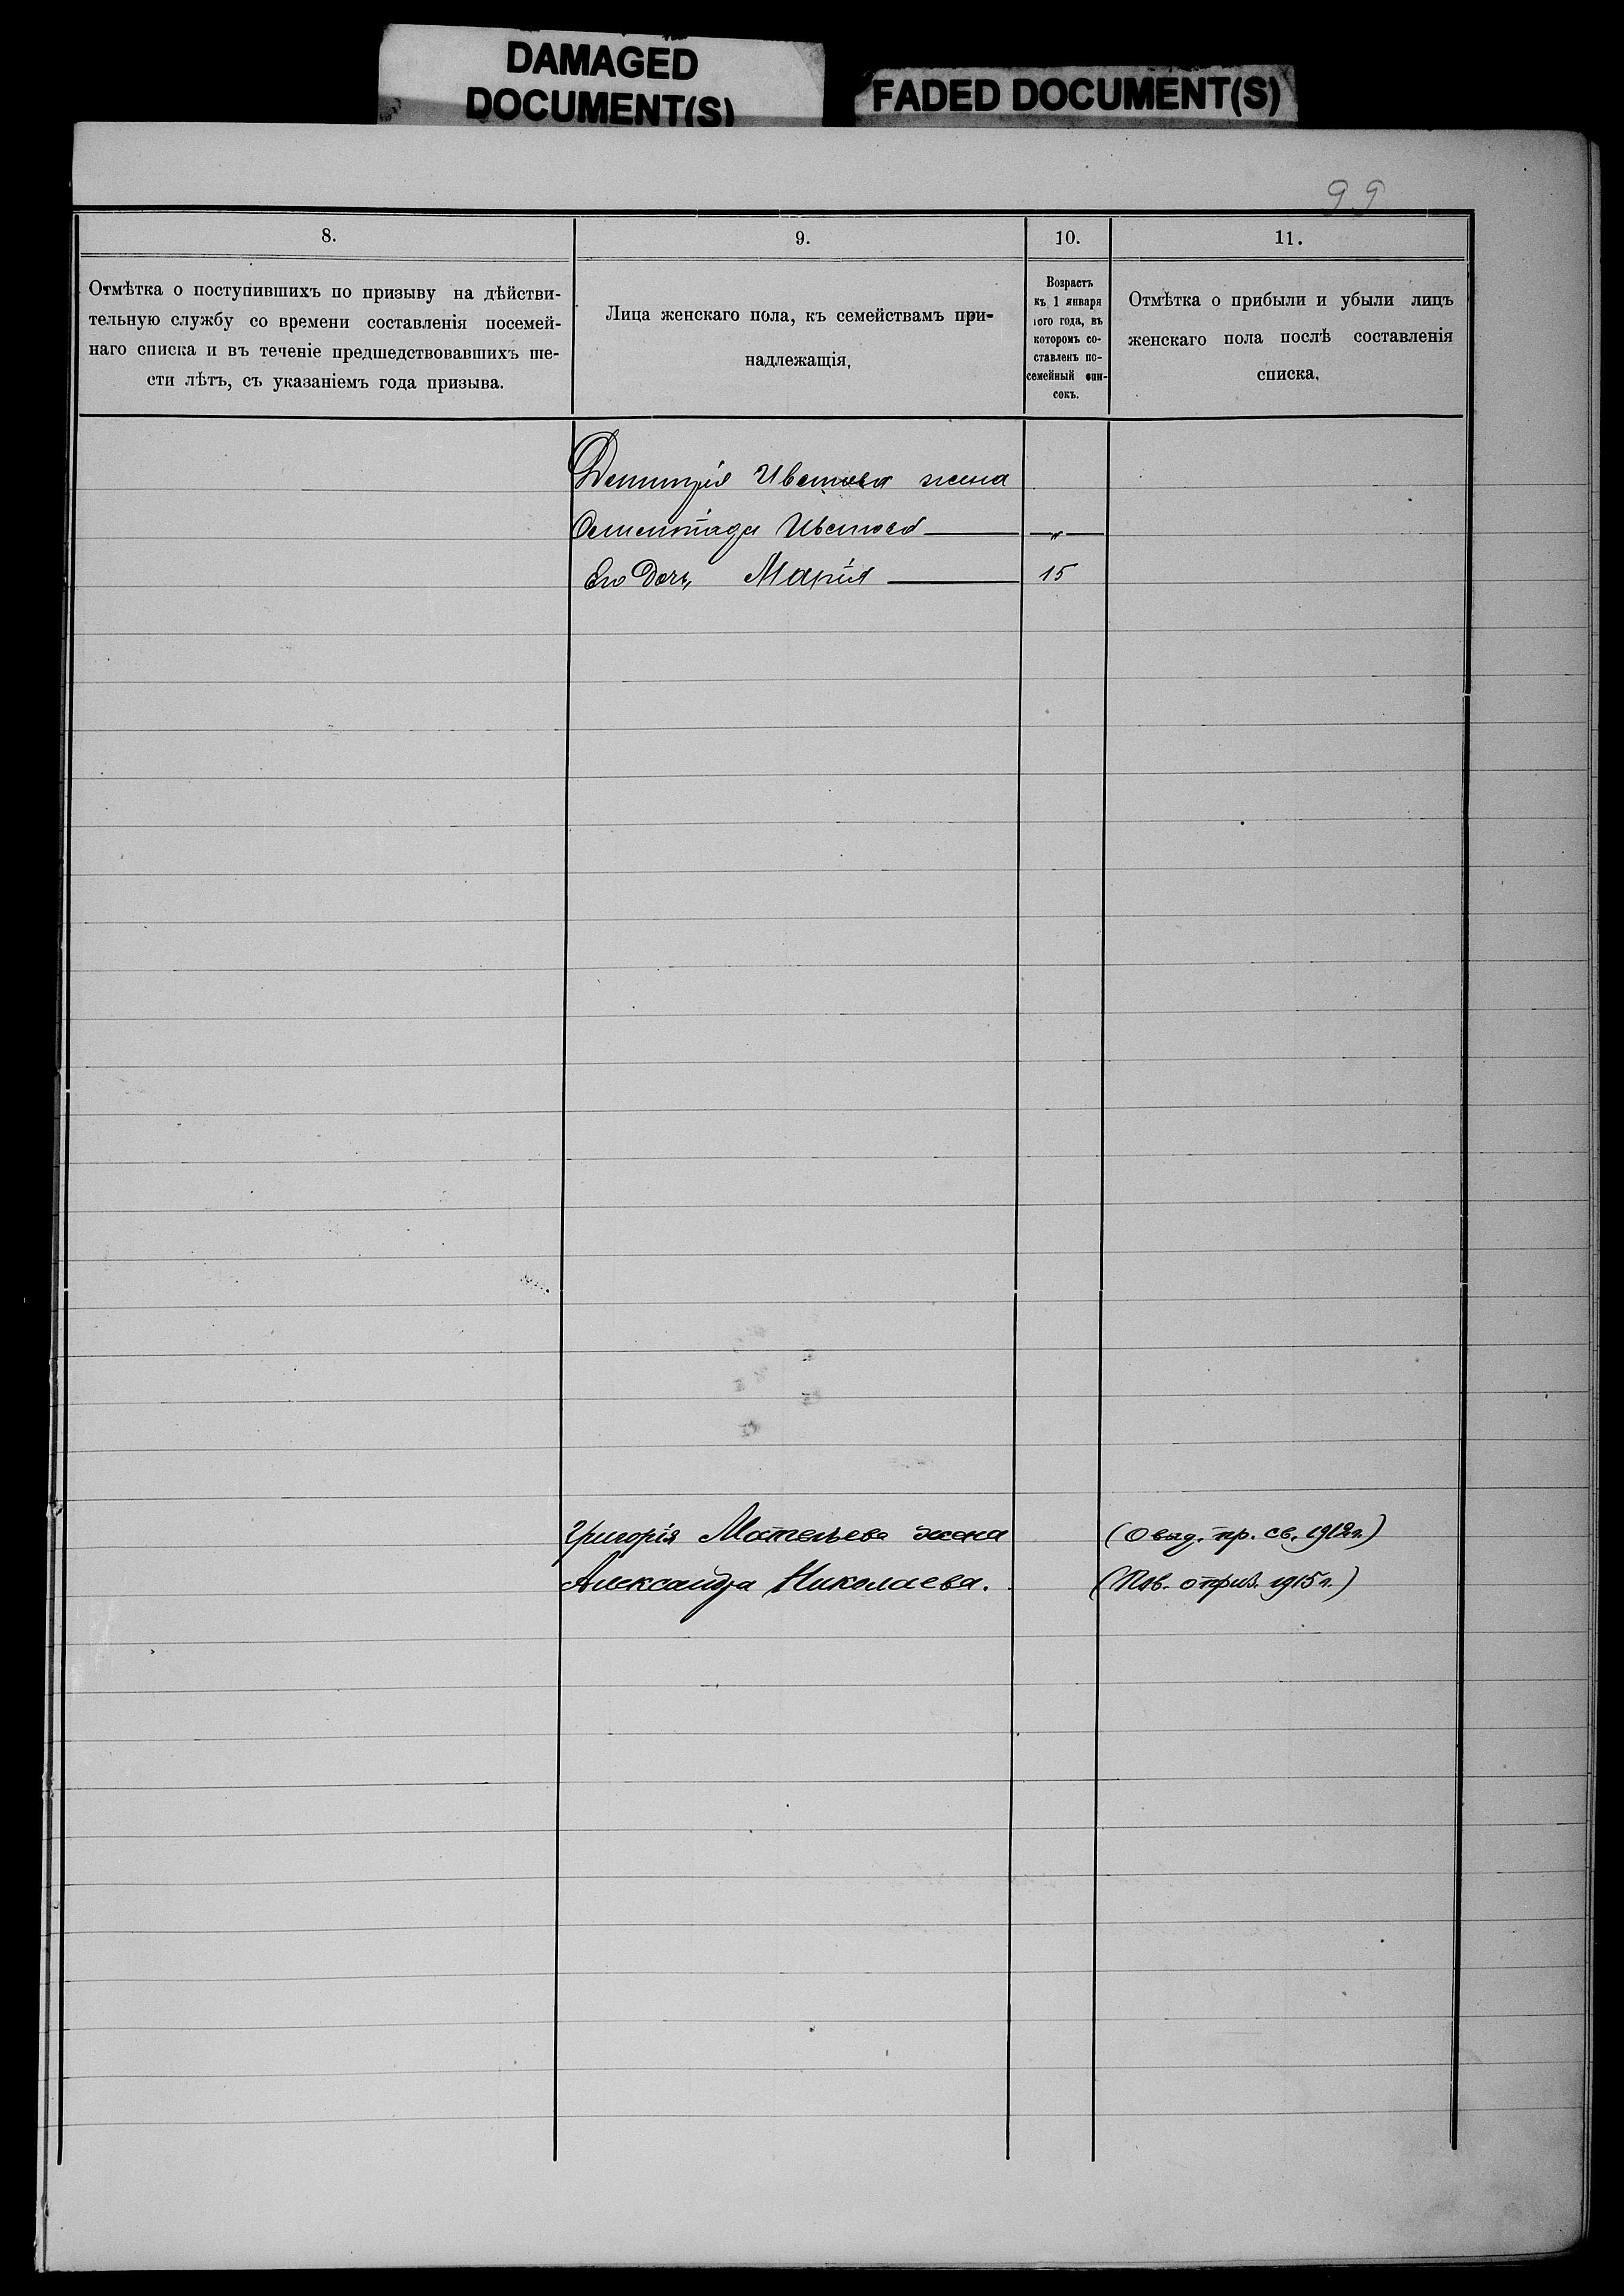 DAMAGED
DOCUMENT(S)
FADED DOCUMENT(S)
99
8.
9.
10.
11.
Отмѣтка о поступившихъ по призыву на дѣйстви-
тельную службу со времени составленія посемей-
наго списка и въ теченіе предшедствовавшихъ ше-
сти лѣтъ, съ указаніемъ года призыва.
Лица женскаго пола, къ семействамъ при-
надлежащія,
Возрастъ
къ 1 января
того года, въ
которомъ со-
ставленъ по-
семейный спи-
сокъ.
Отмѣтка о прибыли и убыли лицъ
женскаго пола послѣ составленія
списка,
жена
Его Дочь Марія 15
Григорія Матвѣева жена (О выд. пр. св. 1912 г.)
Александра Николаева. 1915 г.)